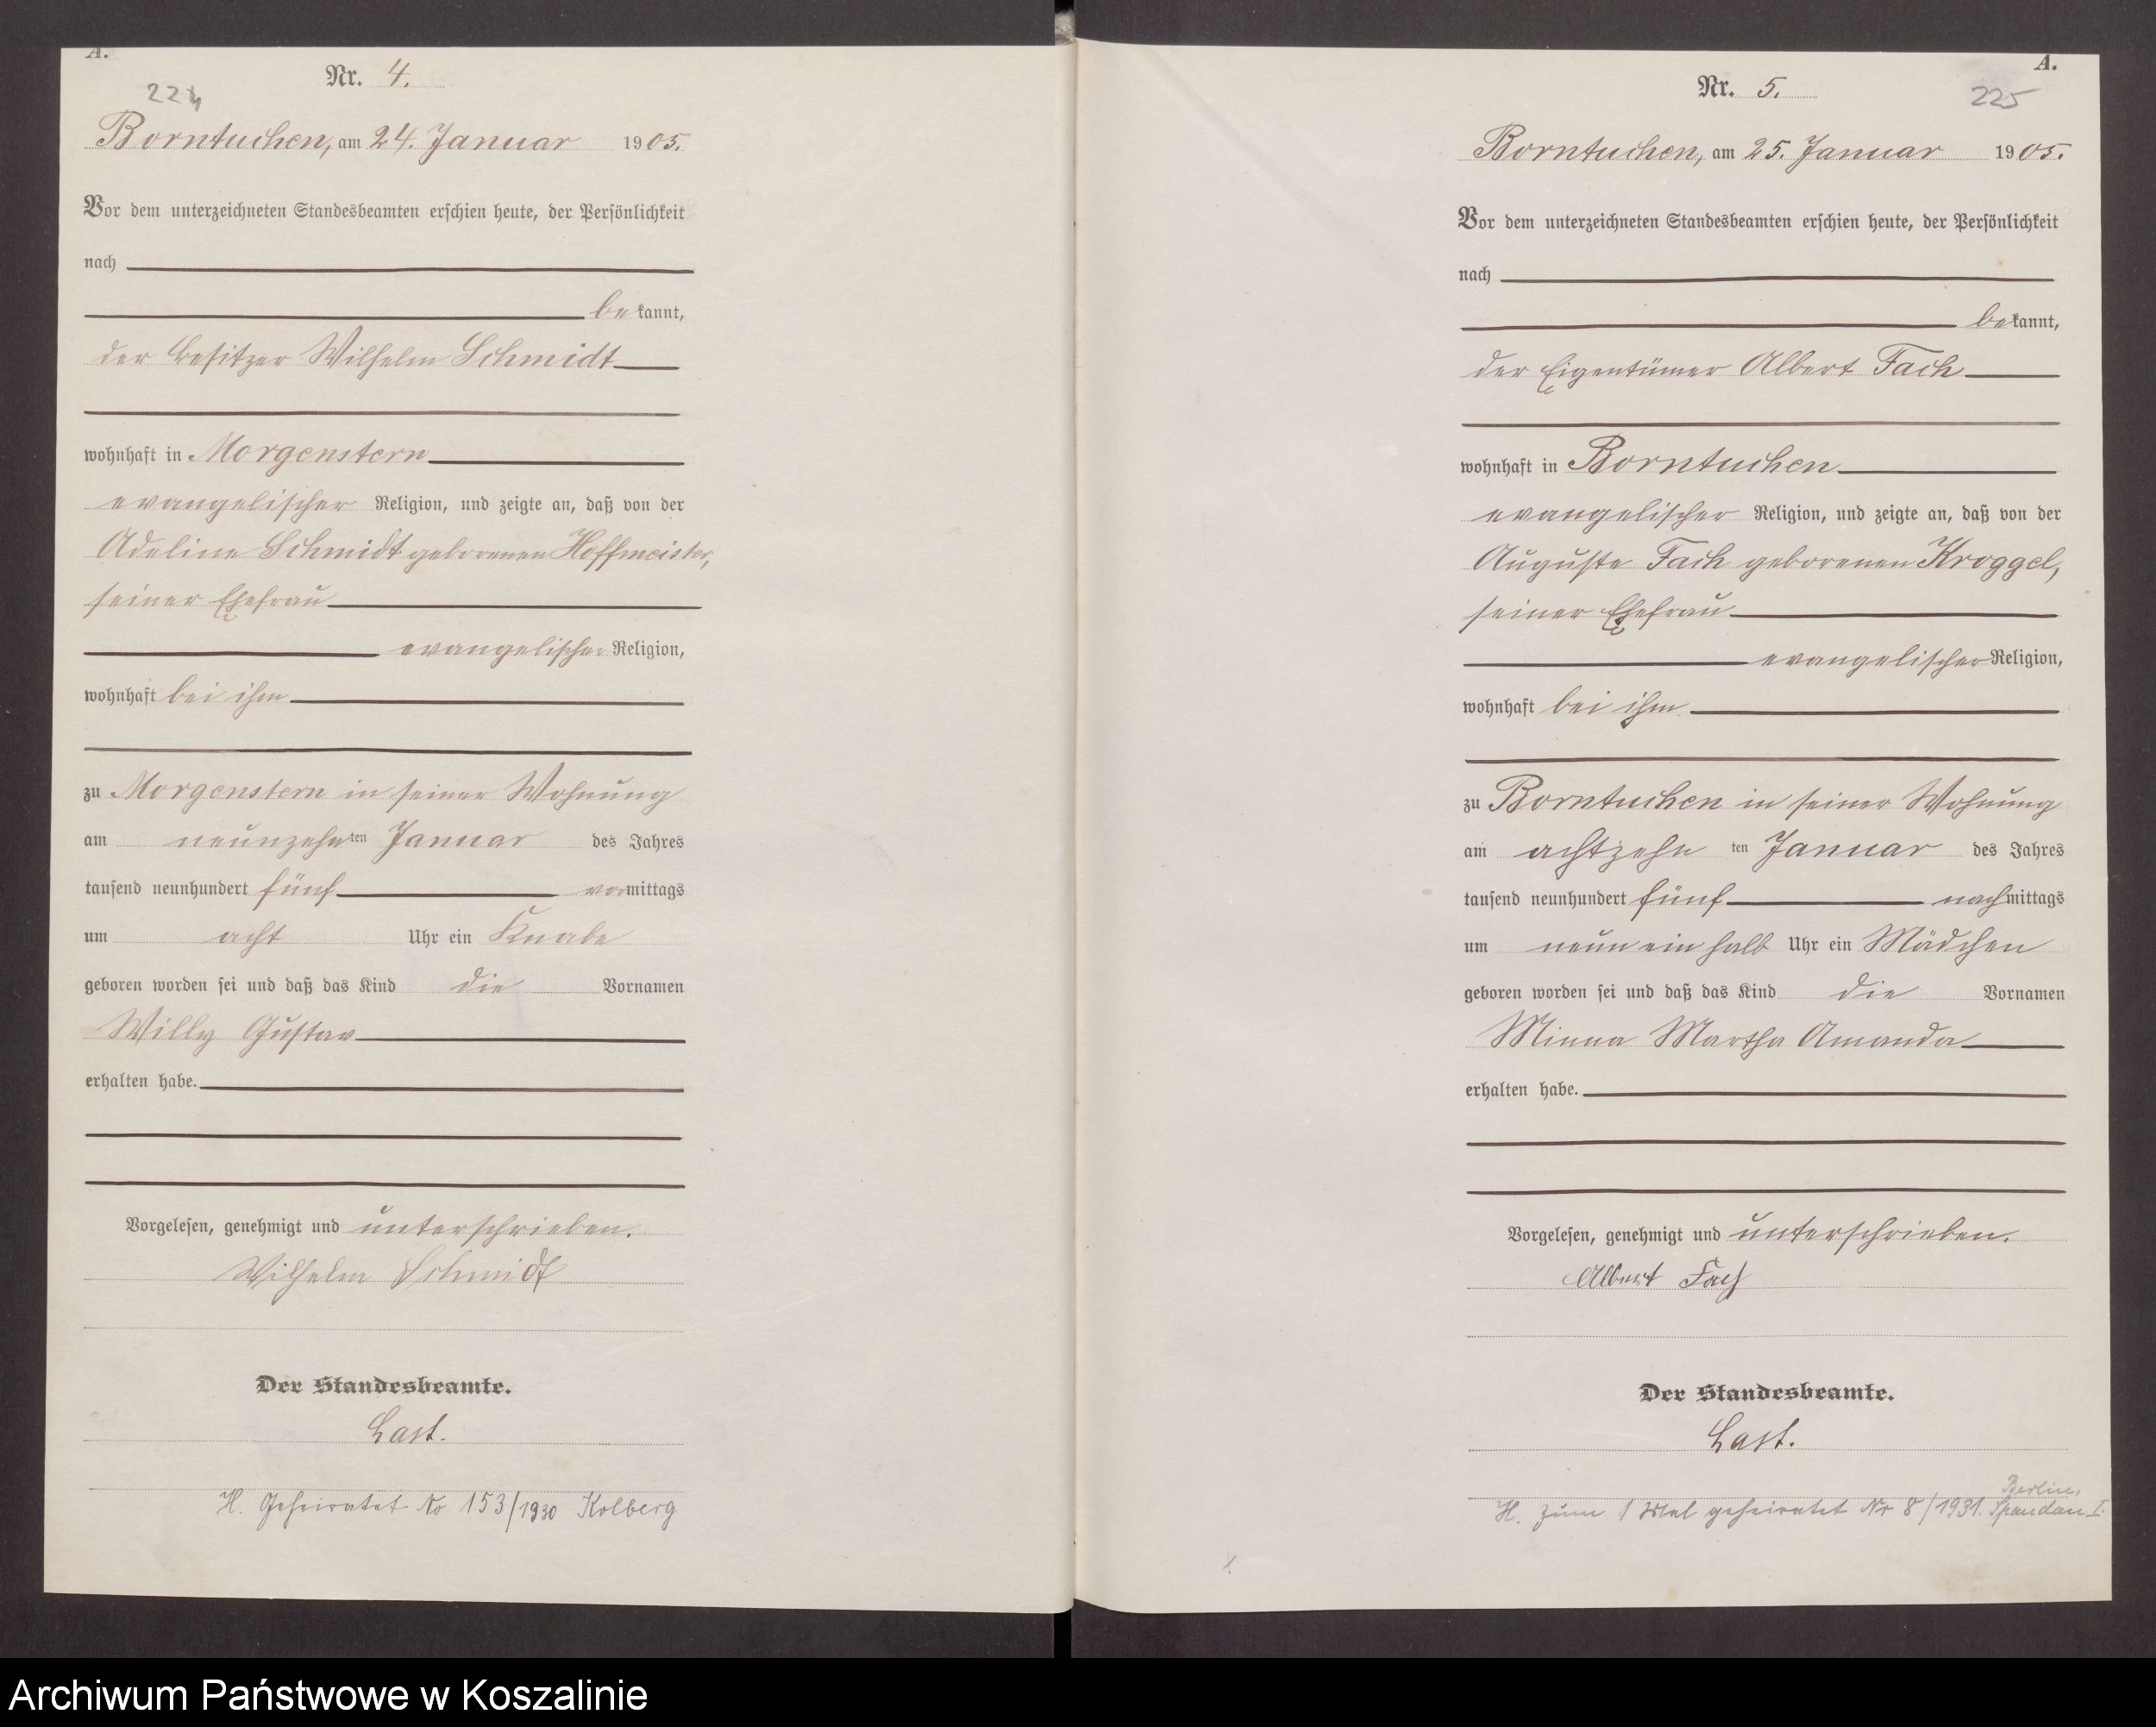 A.
Nr. 4.
224
Borntuchen, am 24. Januar 1905.
Vor dem unterzeichneten Standesbeamten erschien heute, der Persönlichkeit
nach
bekannt,
der Besitzer Wilhelm Schmidt
wohnhaft in Morgenstern
evangelischer Religion, und zeigte an, daß von der
Adeline Schmidt geborenen Hoffmeister,
seiner Ehefrau
evangelischer Religion,
wohnhaft bei ihm
zu Morgenstern in seiner Wohnung
am neunzehnten Januar des Jahres
tausend neunhundert fünf vormittags
um acht Uhr ein Knabe
geboren worden sei und daß das Kind die Vornamen
Willy Gustav
erhalten habe.
Vorgelesen, genehmigt und unterschrieben.
Wilhelm Schmidt
Der Standesbeamte.
Last.
H. Geheiratet No 153/1930 Kolberg
A.
Nr. 5.
225
Borntuchen, am 25. Januar 1905.
Vor dem unterzeichneten Standesbeamten erschien heute, der Persönlichkeit
nach
bekannt,
der Eigentümer Albert Fach
wohnhaft in Borntuchen
evangelischer Religion, und zeigte an, daß von der
Auguste Fach geborenen Kroggel,
seiner Ehefrau
evangelischer Religion,
wohnhaft bei ihm
zu Borntuchen in seiner Wohnung
am achtzehnten Januar des Jahres
tausend neunhundert fünf nachmittags
um neun ein halb Uhr ein Mädchen
geboren worden sei und daß das Kind die Vornamen
Minna Martha Amanda
erhalten habe.
Vorgelesen, genehmigt und unterschrieben.
Albert Fach
Der Standesbeamte.
Last.
Berlin,
H. zum 1 Mal geheiratet Nr 8/1931. Spandau I.
Archiwum Państwowe w Koszalinie